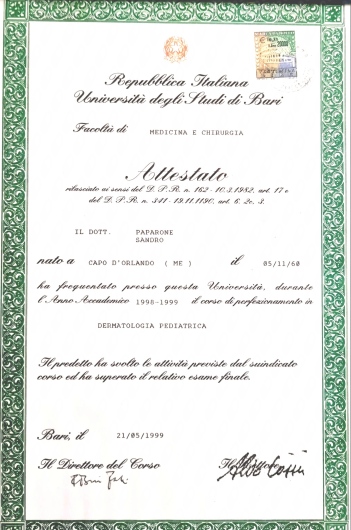 Repubblica Italiana
Università degli Studi di Bari
Facoltà di MEDICINA E CHIRURGIA
Attestato
rilasciato ai sensi del D. P. R. n. 162 - 10.3.1982, art. 17 e
del D. P. R. n. 341 - 19.11.1190, art. 6, 2c. 3.
IL DOTT. PAPARONE
SANDRO
nato a CAPO D'ORLANDO ( ME ) il 05/11/60
ha frequentato presso questa Università, durante
l'Anno Accademico 1998-1999 il corso di perfezionamento in
DERMATOLOGIA PEDIATRICA
Il predetto ha svolto le attività previste dal suindicato
corso ed ha superato il relativo esame finale.
Bari, il 21/05/1999
Il Direttore del Corso Il Rettore